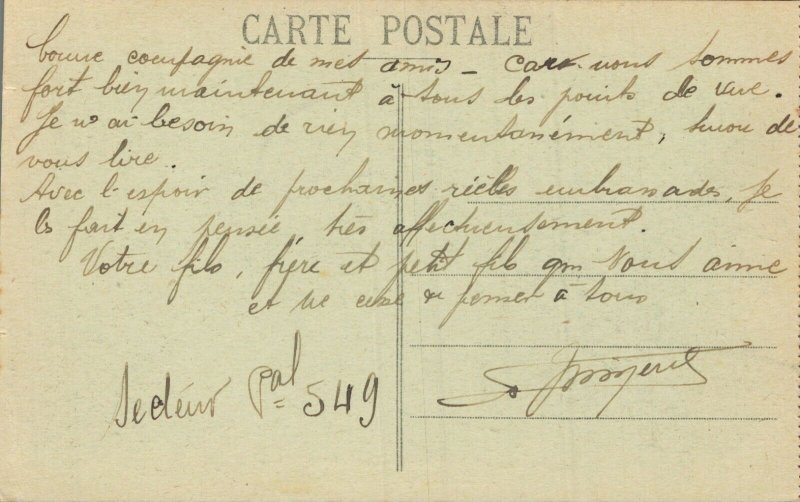 CARTE POSTALE
bonne compagnie de mes amis – Car nous sommes
fort bien maintenant à tous les points de vue.
Je n'ai besoin de rien momentanément, sinon de
vous lire.
Avec l'espoir de prochaines réelles embrassades, je
les fait en pensée, très affectueusement.
Votre fils, frère et petit fils qui vous aime
et ne cesse de penser à tous
Secteur Pal 549